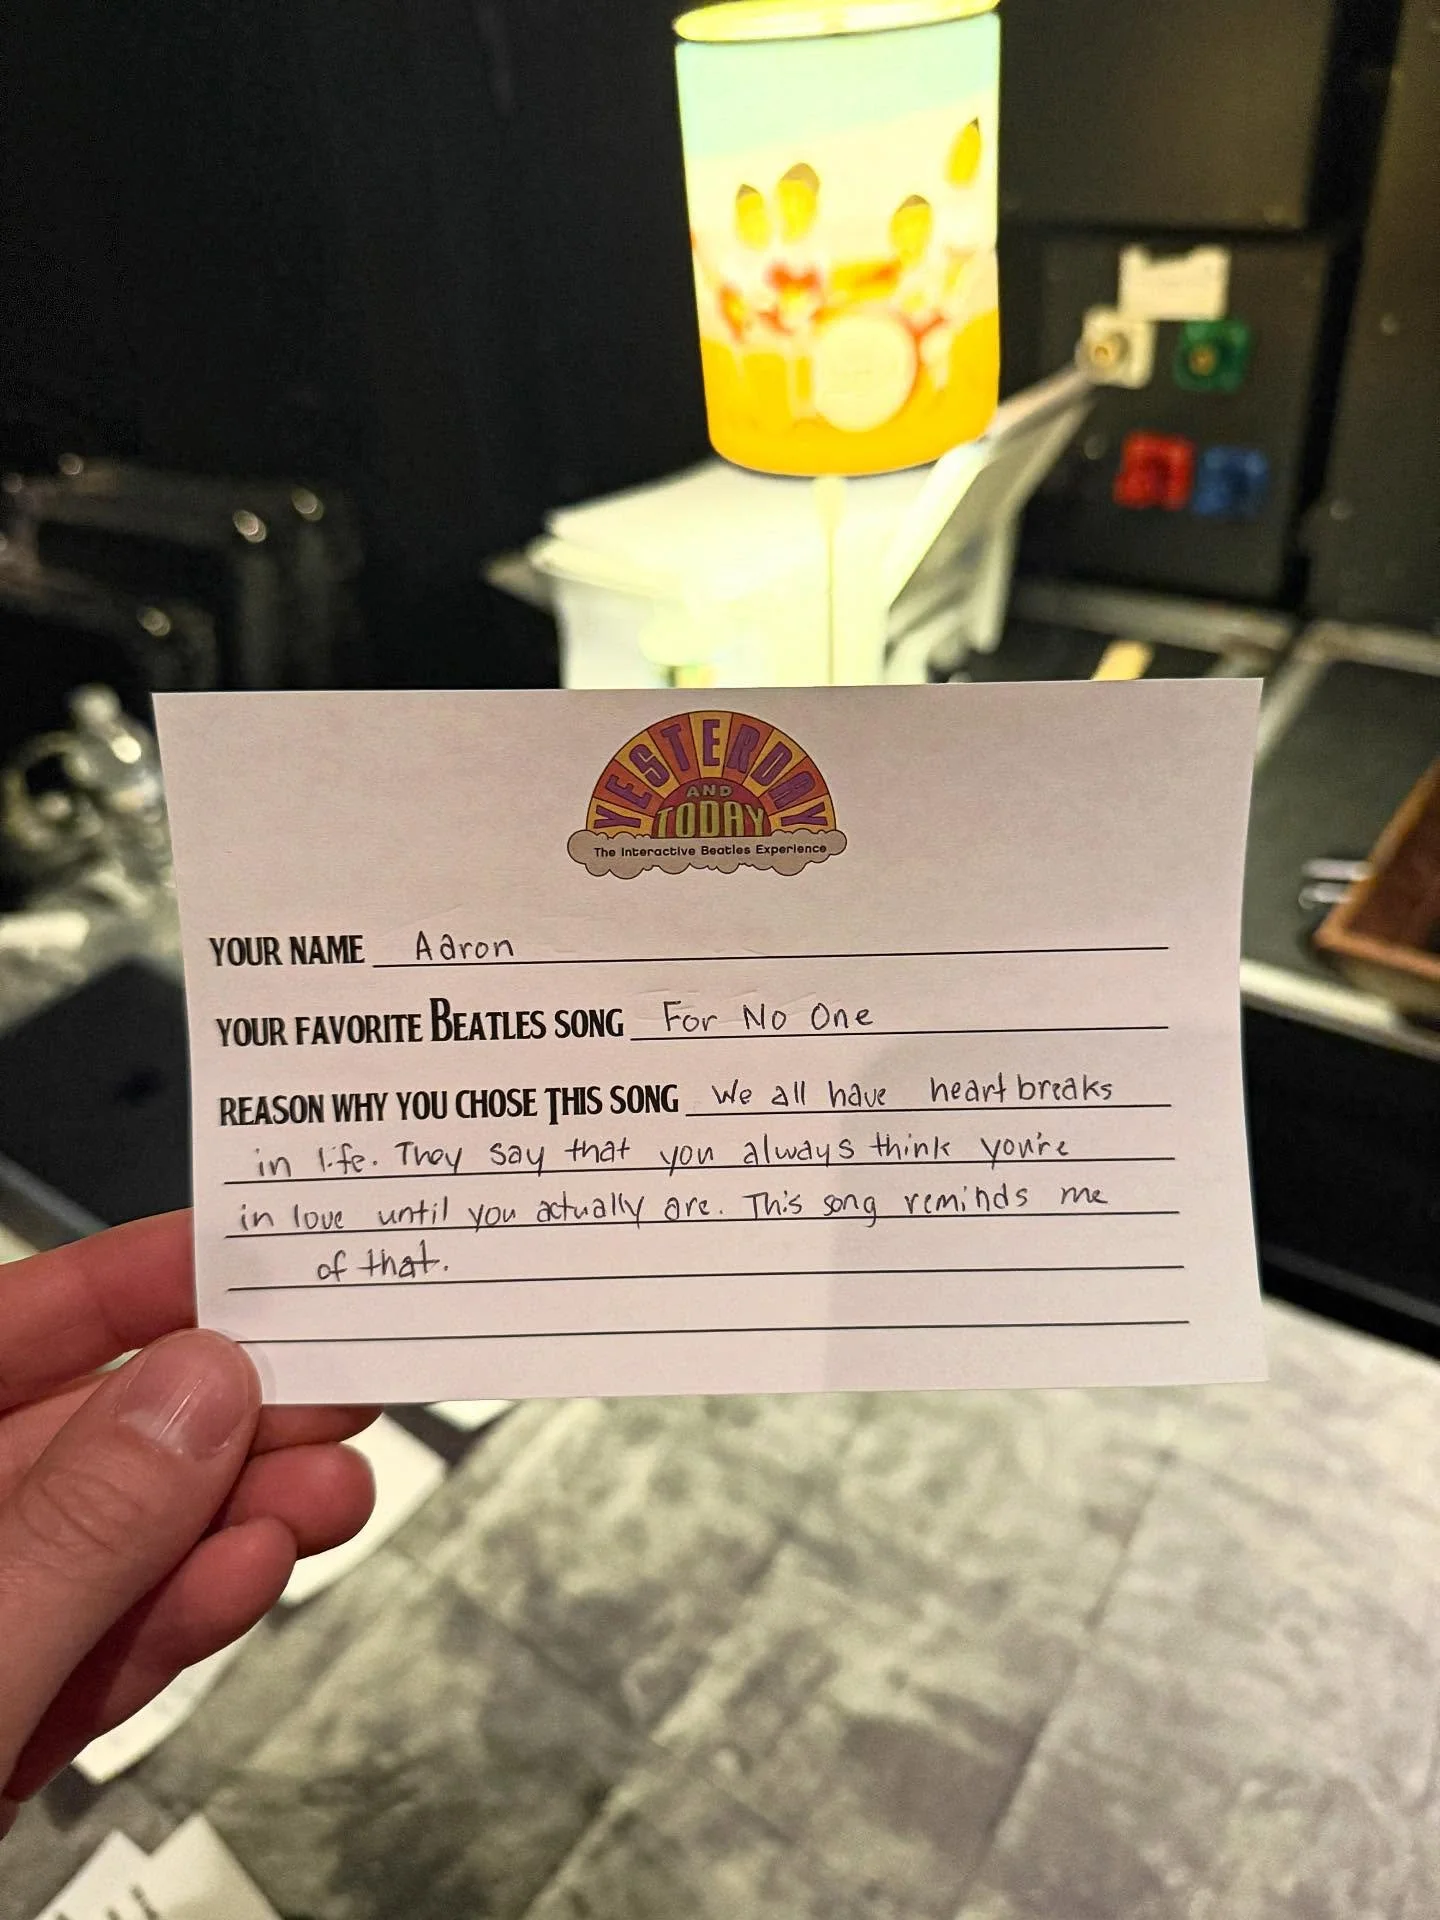 YESTERDAY
AND
TODAY
The Interactive Beatles Experience
YOUR NAME Aaron
YOUR FAVORITE BEATLES SONG For No One
REASON WHY YOU CHOSE THIS SONG We all have heart breaks
in life. They say that you always think you're
in love until you actually are. This song reminds me
of that.